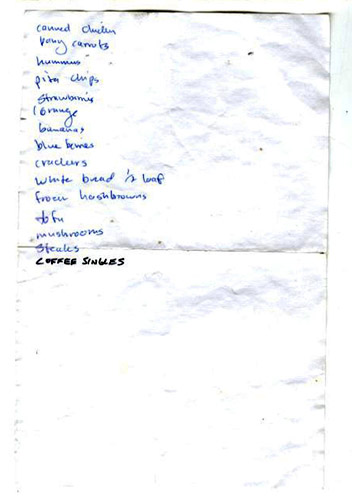 canned chicken
baby carrots
hummus
pita chips
strawberries
1 orange
bananas
blueberries
crackers
white bread 1/2 loaf
frozen hashbrowns
tofu
mushrooms
steaks
COFFEE SINGLES